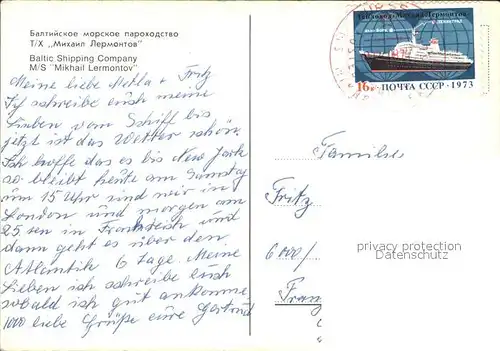 Балтийское морское пароходство
Т/Х „Михаил Лермонтов"
Baltic Shipping Company
M/S "Mikhail Lermontov"
Meine liebe Mekla + Fritz
Ich schreibe euch meine
Lieben vom Schiff bis
jetzt ist das Wetter schön.
Ich hoffe das es bis New Jork
so bleibt heute am Sunstag
um 15 Uhr sind wir in
London und morgen am
25 sen in Frankreich und
dann geht es über den
Atlantik 6 Tage. Meine
Lieben ich schreibe euch
sobald ich gut ankomme
1000 liebe Grüße eure Gertrud
Теплоход „Михаил Лермонтов"
НЬЮ-ЙОРК
ЛЕНИНГРАД
16к ПОЧТА СССР·1973
Familie
Fritz
6000/
Fran
privacy protection
Datenschutz